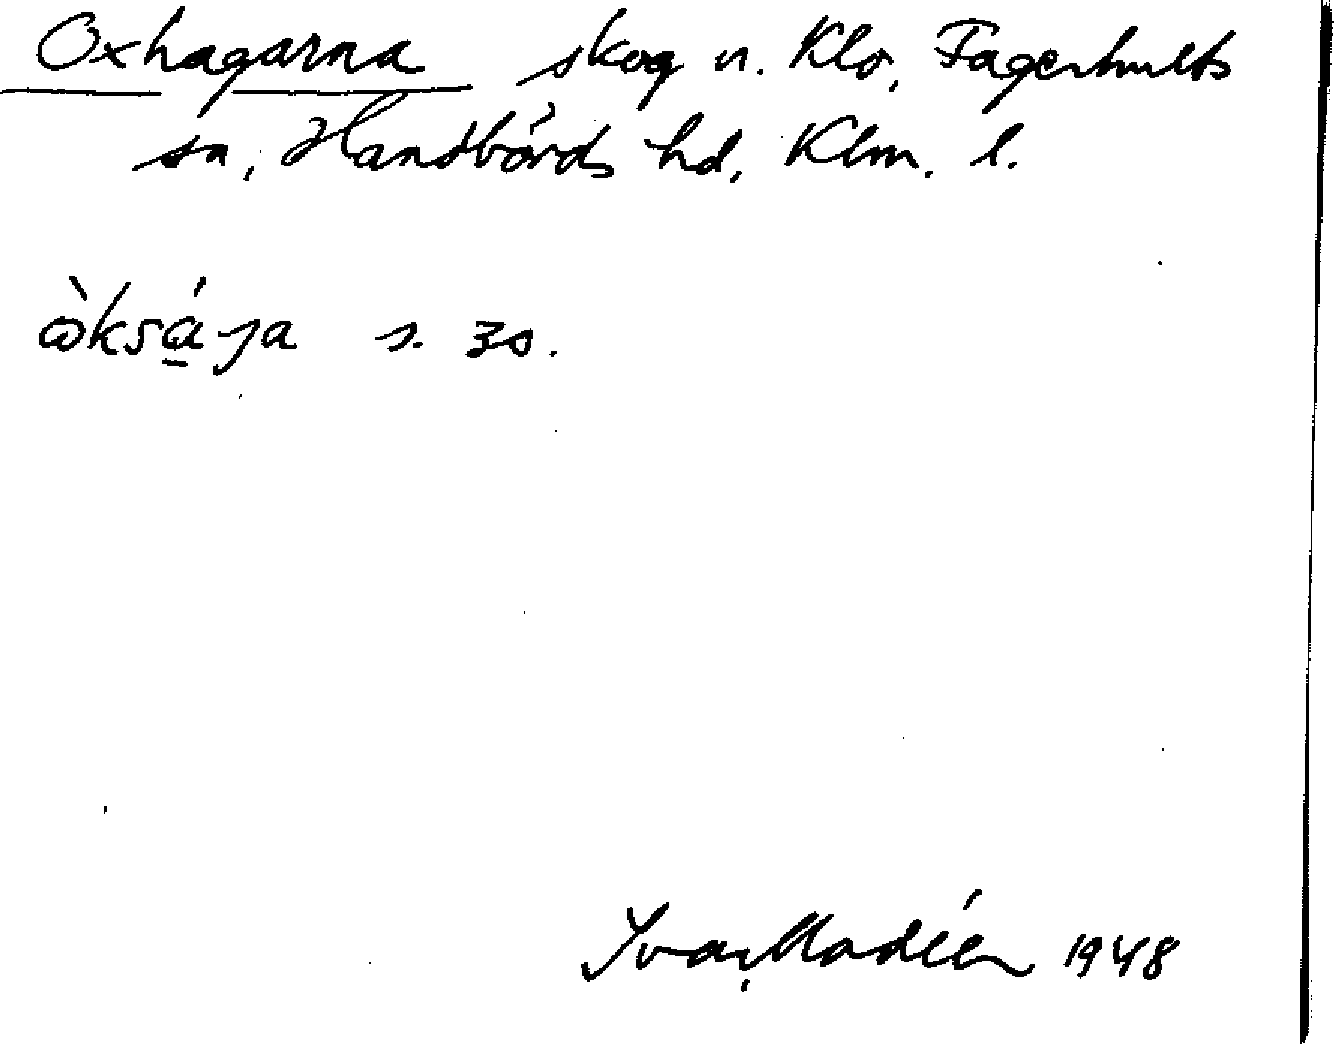 Oxhagarna skog n. Klo, Fagerhults
sn, Handbörds hd, Klm. l.
ɷ̀ksá̱ja s. 30.
Ivar Modéer 1948